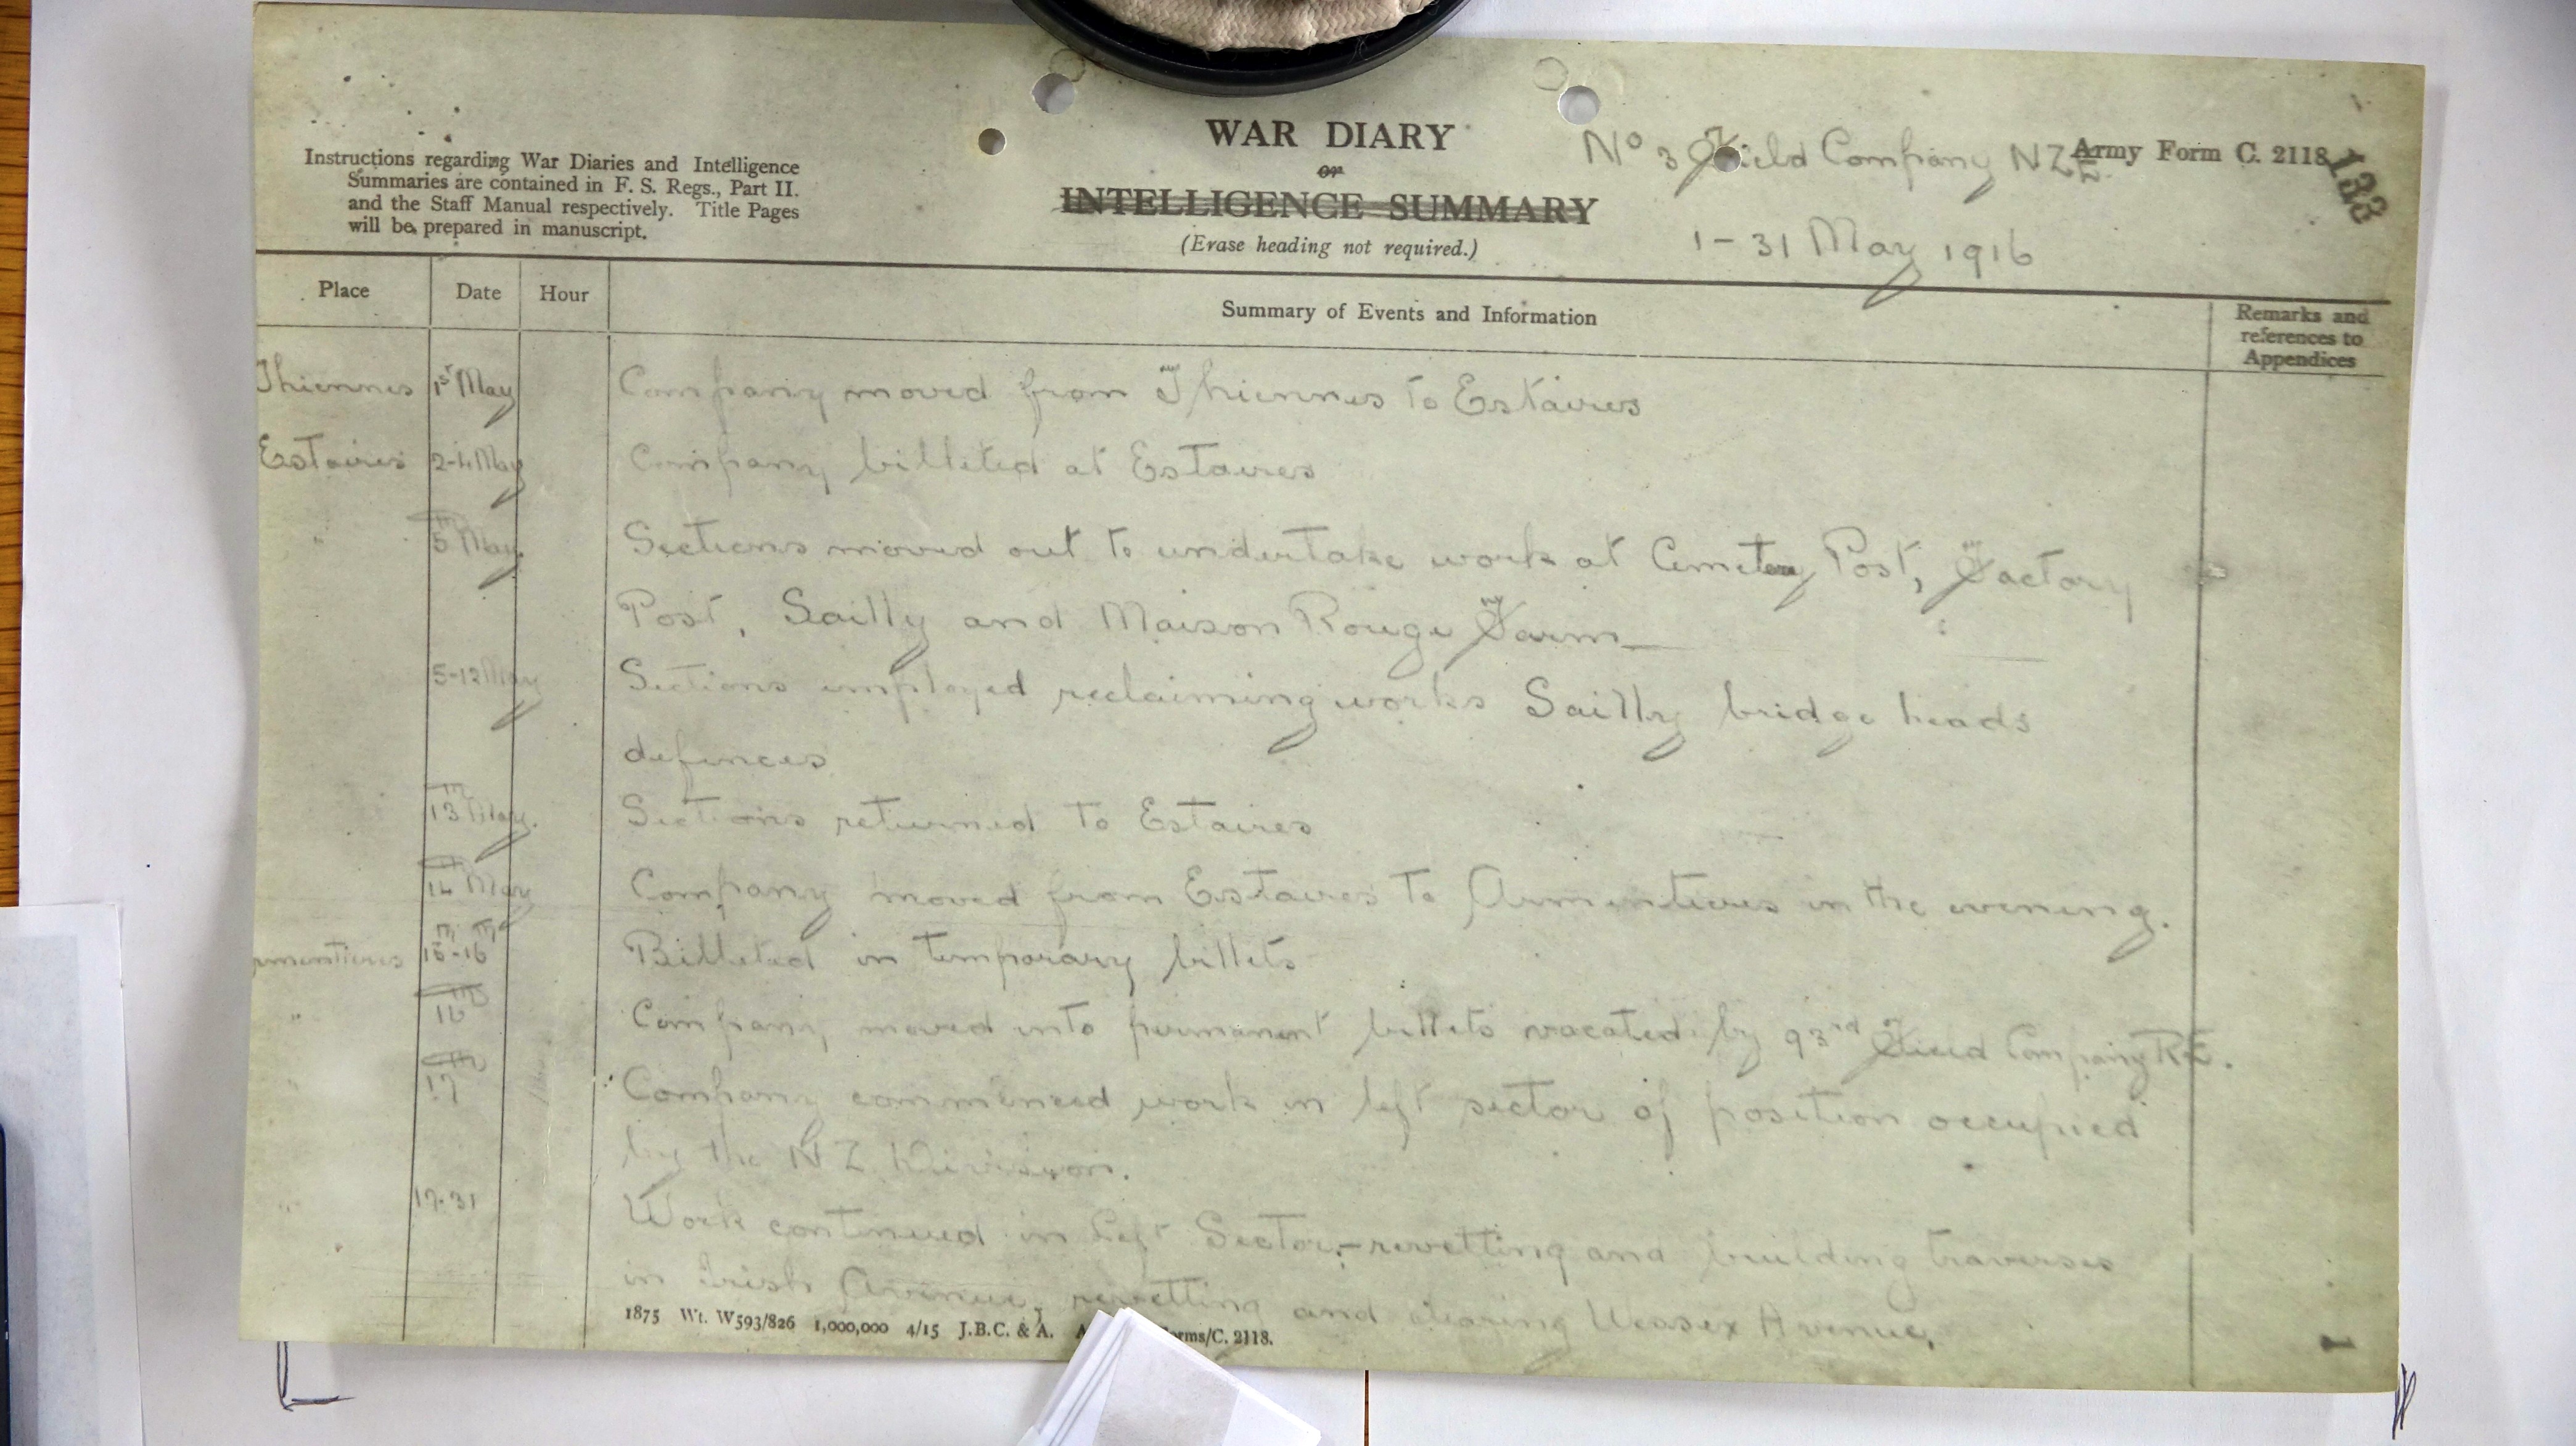 WAR DIARY
or
INTELLIGENCE SUMMARY
(Erase heading not required.)
Instructions regarding War Diaries and Intelligence
Summaries are contained in F. S. Regs., Part II.
and the Staff Manual respectively. Title Pages
will be prepared in manuscript.
No 3 Field Company NZE.
Army Form C. 2118
133
1-31 May 1916
Place Date Hour Summary of Events and Information Remarks and
references to
Appendices
Thiennes 1st May Company moved from Thiennes to Estaires
Estaires 2-4 May Company billeted at Estaires
" 5th May Sections moved out to undertake work at Cemetery Post, Factory
Post, Sailly and Maison Rouge Farm
5-12 May Sections employed reclaiming works Sailly bridge heads
defences
13th May. Sections returned to Estaires
14th May Company moved from Estaires to Armentieres in the evening.
rmentieres 15th-16th Billeted in temporary billets
" 16th Company moved into permanent billets vacated by 93rd Field Company RE.
" 17th Company commenced work in left sector of position occupied
by the NZ Division.
" 17-31 Work continued in Left Sector,- revetting and building traverses
in Irish Avenue, revetting and clearing Wessex Avenue,
1875 Wt. W593/826 1,000,000 4/15 J.B.C. & A. A orms/C. 2118.
1